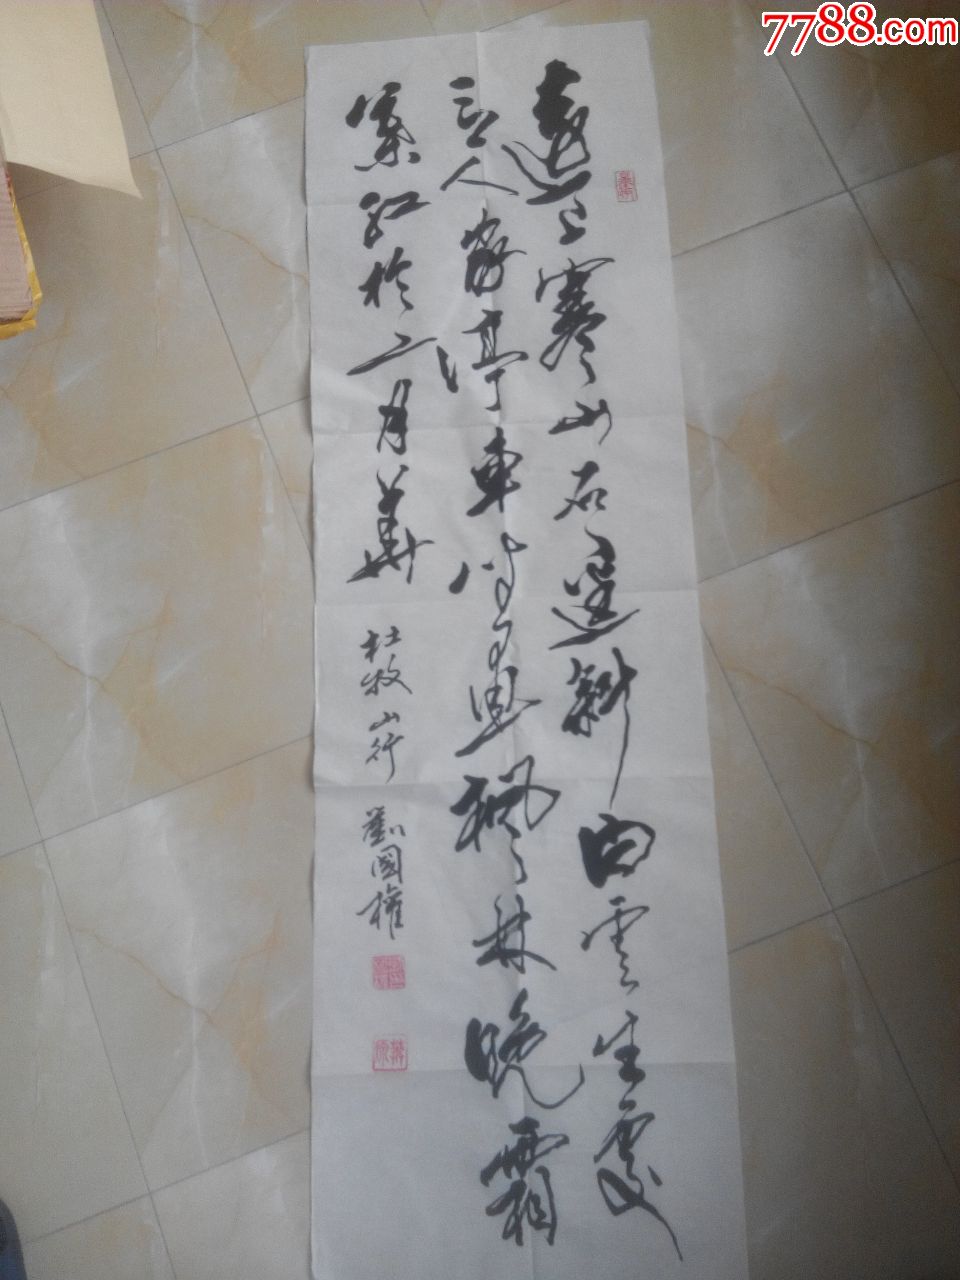 7788.com
遠上寒山石逕斜白雲生處
有人家停車坐愛楓林晚霜
葉紅於二月華
杜牧山行 劉國權